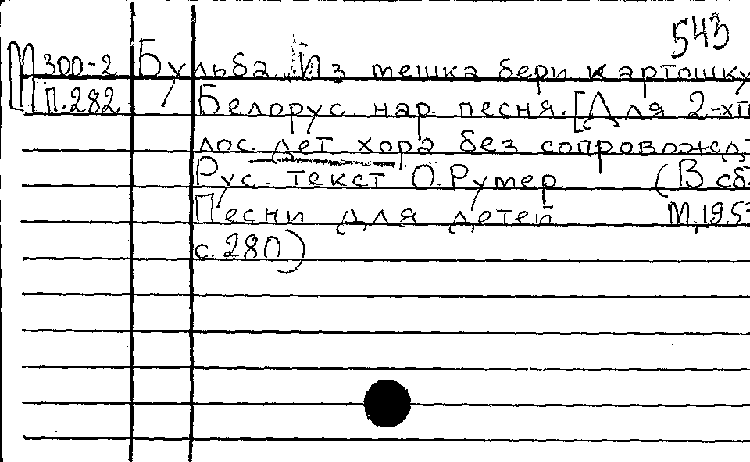 543
М 300-2 Бульба. Из мешка бери картошку
П.282 Белорус нар песня. [Для 2-хго
лос. дет хора без сопровожд
Рус. текст О. Румер (В сб
Песни для детей М, 195
с 280)